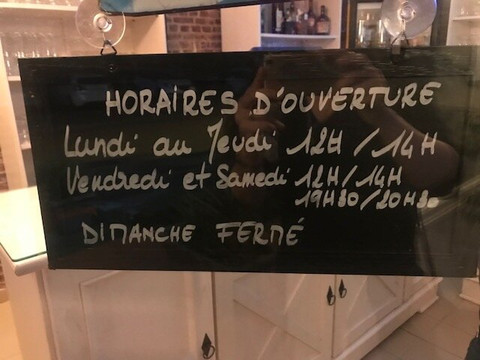 HORAIRES D'OUVERTURE
Lundi au Jeudi 12H / 14H
Vendredi et Samedi 12H / 14H
19H30 / 20H30
DIMANCHE FERMÉ